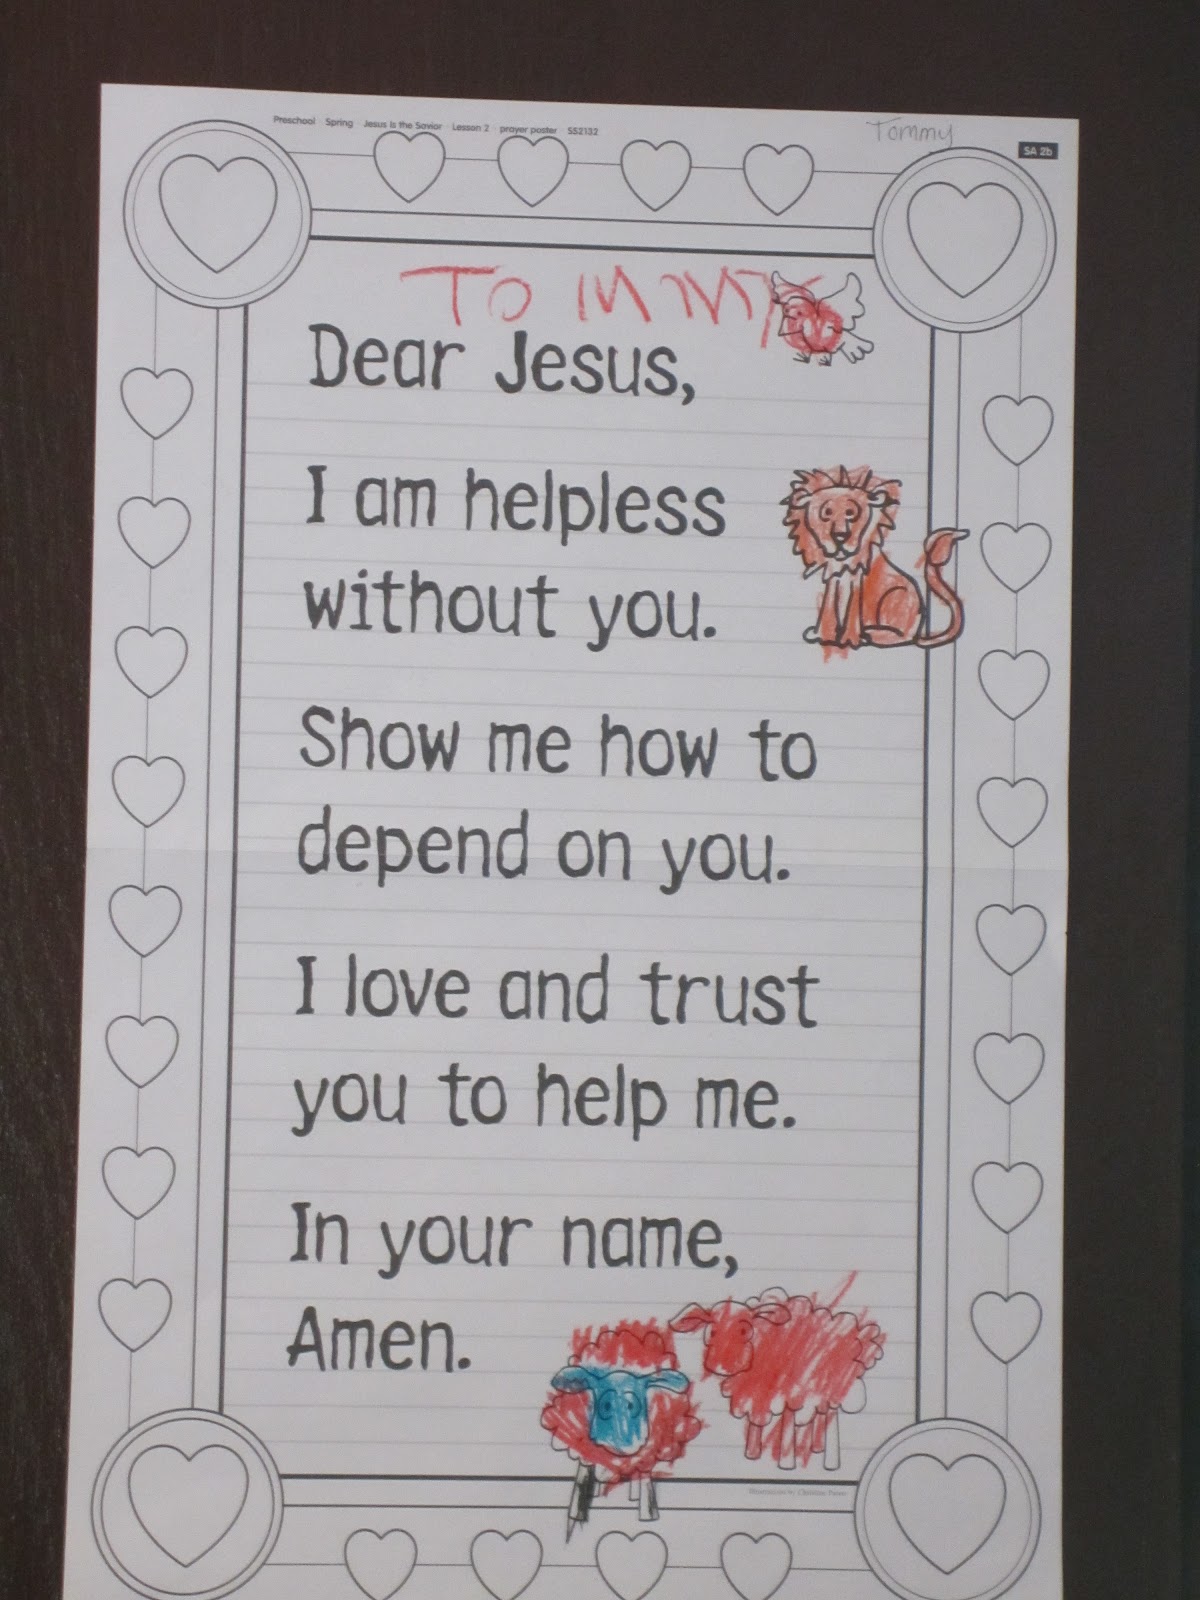 Preschool Spring Jesus Is the Savior Lesson 2 prayer poster SS2132
Tommy
SA 2b
TOMMY
Dear Jesus,
I am helpless
without you.
Show me how to
depend on you.
I love and trust
you to help me.
In your name,
Amen.
Illustration by